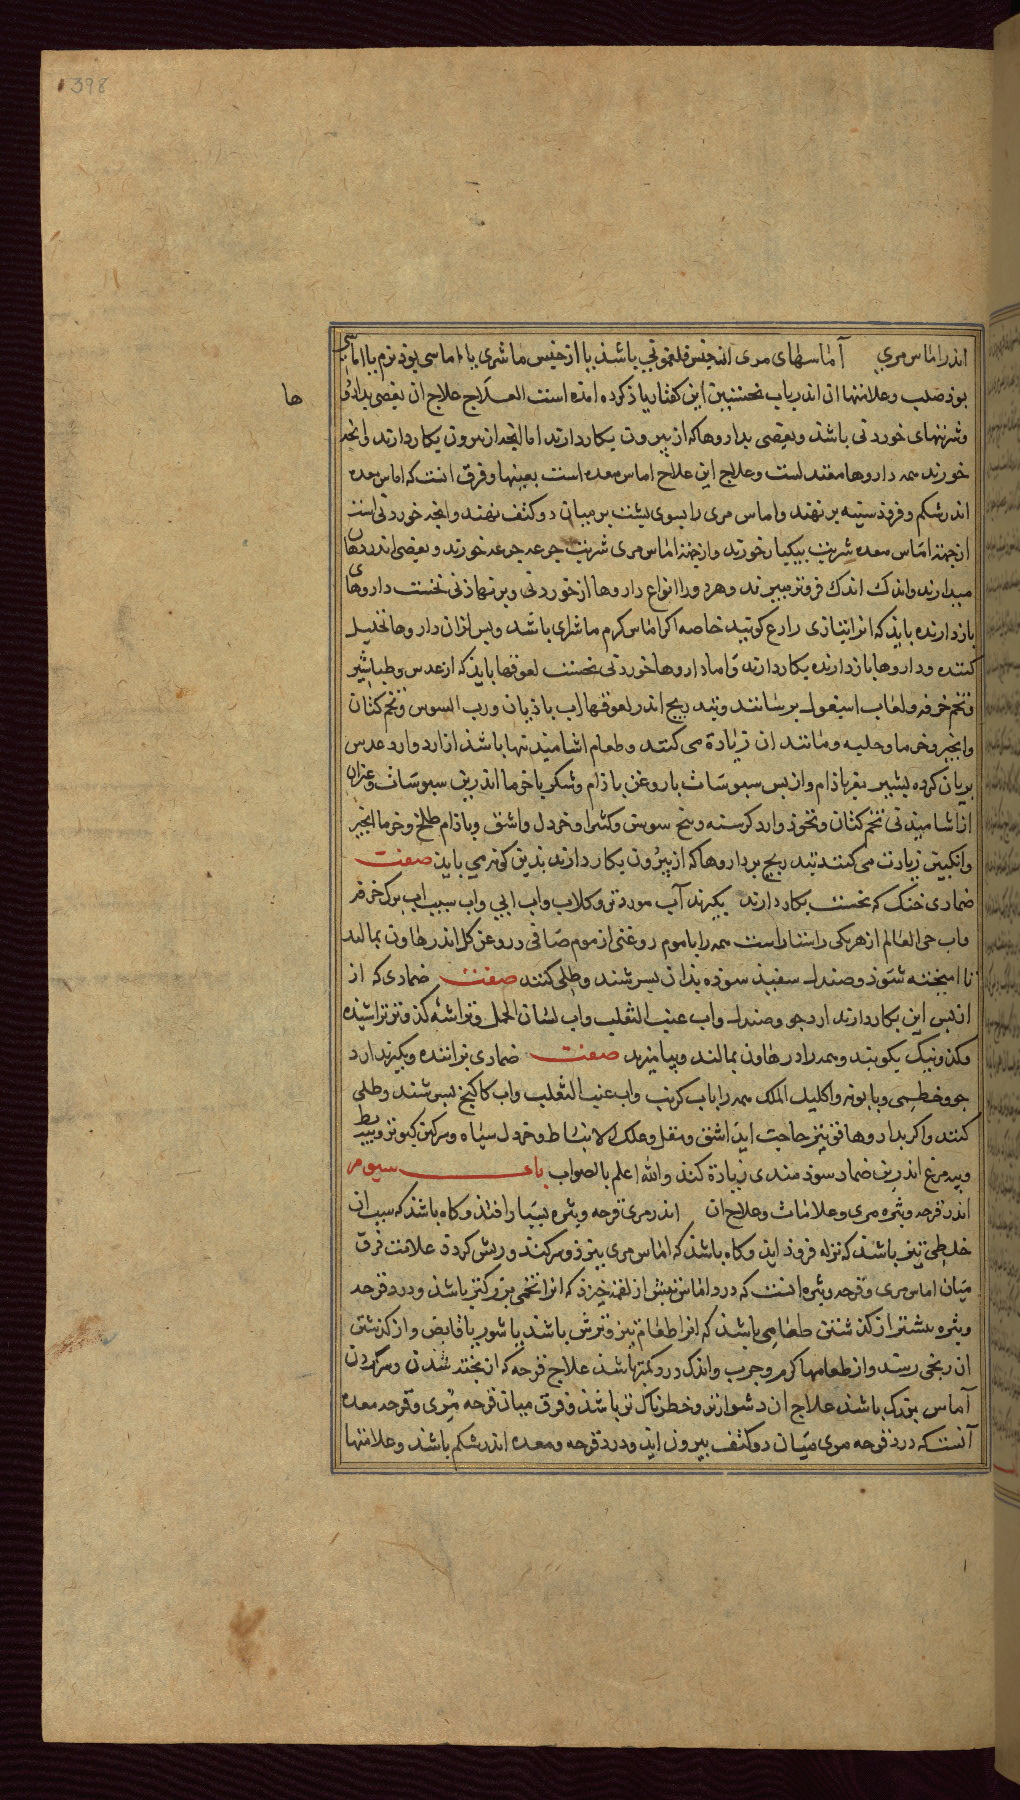 398
اندر اماس مری آماسهای مری از جنس فلغمونی باشد یا از جنس ماشری یا اماسی بود نرم یا اماسی
بود صلب و علامتهاان اندر باب نخستین این کفتار یاذ کرده امده است العلاج علاج ان بعضی بدارو
ها
و شربتهای خوردنی باشذ و بعضی بداروها که از بیرون بکار دارند اما انچه از بیرون بکار دارند و انچه
خورند همه داروها معتدلست و علاج این علاج اماس معده است بعینها و فرق انست که اماس معده
اندر شکم و فروذ سینه برنهند و اماس مری را بسوی پشت بر میان دو کتف نهند و انچه خوردنی است
از جهة اماس معده شربت بیکبار خورند و از جهة اماس مری شربت جرعه جرعه خورند و بعضی اندر دهان
میدارند و اندک اندک فروتر میبرند و هر دو را انواع داروها از خوردنی و برنهاذنی نخست داروهای
بازدارنده بایذ که انرا بتازی رادع کویند خاصه اکر اماس کرم ماشرای باشد و پس ازان داروها تحلیل
کننده و داروها بازدارنده بکار دارند و اما داروها خوردنی نخست لعوقها بایذ که از عدس و طباشیر
و تخم خرفه و لعاب اسپغول برشانند و بتدریج اندر لعوقها اب باذیان و رب السوس و تخم کتان
و انجیر و خرما و حلبه و مانند ان زیادة می کنند و طعام اشامیدنیها باشذ از ارد و ارد عدس
بریان کرده بشیر مغز باذام و از پس سبوسات با روغن باذام و شکر یا خرما اندرین سبوسات و غیر ان
از اشامیدنی تخم کتان و نخوذ و ارد کرسنه و بیخ سوسن و کتیرا و خردل و اشق و باذام طلخ و خرما انجیر
و انکبین زیادت می کنند بتدریج بر داروها که از بیرون بکار دارند بدین کونه می باید صفت
ضمادی خنک که نخست بکار دارند بکیرند آب مورد تر و کلاب و اب ابی و اب سیب اب برک خرفه
و اب حی العالم از هر یکی راستا راست همه را با موم روغنی از موم صافی و روغن کل اندر هاون بمالند
تا امیخته شوذ و صندل سفیذ سوذه بذان بسرشند و طلی کنند صفت ضمادی که از
از پس این بکار دارند ارد جو و صندل و اب عنب الثعلب و اب لسان الحمل و تراشه کذو تر تراشیذه
و کذو نیک بکوبند و همه را در هاون بمالند و بیامیزند صفت ضمادی براننده و بکیرند ارد
جو و خطمی و بابونه و اکلیل الملک همه را باب کرنب و اب عنب الثعلب و اب کاکنج بسرشند و طلی
کنند و اکر بداروها قوی‌تر حاجت ایذ اشق و مقل و علک الانباط و خردل سیاه و سرکین کبوتر و پیه بط
و پیه مرغ اندرین ضماد سوذمندی زیادة کنذ و الله اعلم بالصواب باب سیوم
اندر قرحه و بثره مری و علامات و علاج ان اندر مری قرحه و بثره بسیار افتد و کاه باشذ که سبب ان
خلطی تیز باشد که نزله فروذ ایذ و کاه باشذ که اماس مری بپزذ و سرکند و ریش کردذ علامت فرق
میان اماس مری و قرحه و بثره انست که درد اماس بیش از لقمه خیزذ که انرا تخمی بزرکتر باشذ و درد قرحه
و بثره بیشتر از کذشتن طعامی باشذ که انرا طعام تیز و ترش باشذ یا شور یا قابض و از کذشتن
ان رنجی رسد و از طعامها کرم و چرب و اندک درد کمتر باشد علاج قرحه که از پخته شدن و سرکردن
آماس بزرک باشذ علاج ان دشوارتر و خطرناک تر باشذ و فرق میان قرحه مری و قرحه معده
آنست که درد قرحه مری میان دو کتف بیرون ایذ و درد قرحه و معده اندر شکم باشد و علامتها